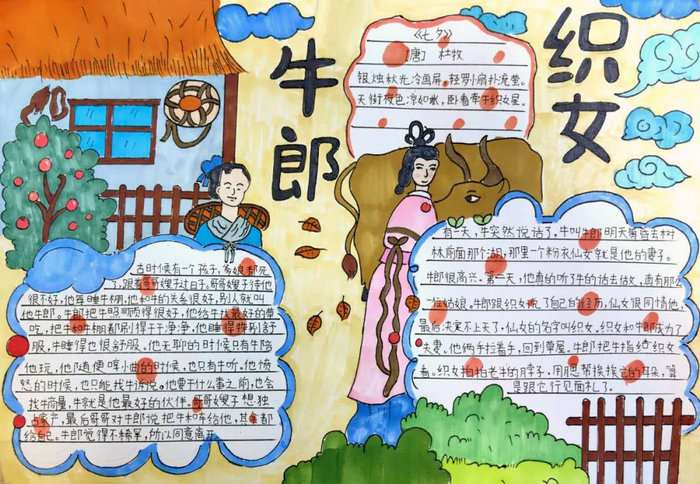 牛郎
织女
《七夕》
[唐] 杜牧
银烛秋光冷画屏,轻罗小扇扑流萤。
天街夜色凉如水,卧看牵牛织女星。
古时候有一个孩子,爹娘都死
了,跟着哥哥嫂子过日子。哥哥嫂子待他
很不好,他每睡牛棚,他和牛的关系很好,别人就叫
他牛郎。牛郎把牛照顾得很好,他给牛找最好的草
吃,把牛和牛棚都刷得干干净净,他睡得特别舒
服,牛睡得也很舒服。他无聊的时候只有牛陪
他玩,他随便哼小曲的时候,也只有牛听。他愤
怒的时候,也只能找牛诉说。他要干什么事之前,也会
找牛商量,牛就是他最好的伙伴。哥哥嫂子想独
占家产,最后哥哥对牛郎说把牛和车给他,其余都
给自己。牛郎觉得不稀罕,所以同意离开
有一天,牛突然说话了,牛叫牛郎明天黄昏去树
林前面那个湖,那里一个粉衣仙女就是他的妻子。
牛郎很高兴。第二天,他真的听了牛的话去做,真有那么
一位姑娘,牛郎跟织女说了自己的经历,仙女很同情他,
最后决定不上天了,仙女的名字叫织女,织女和牛郎成为了
夫妻。他俩手拉着手,回到草屋。牛郎把牛指给织女
看。织女拍拍老牛的脖子,用腮帮挨挨它的耳朵,算
是跟它行见面礼了。